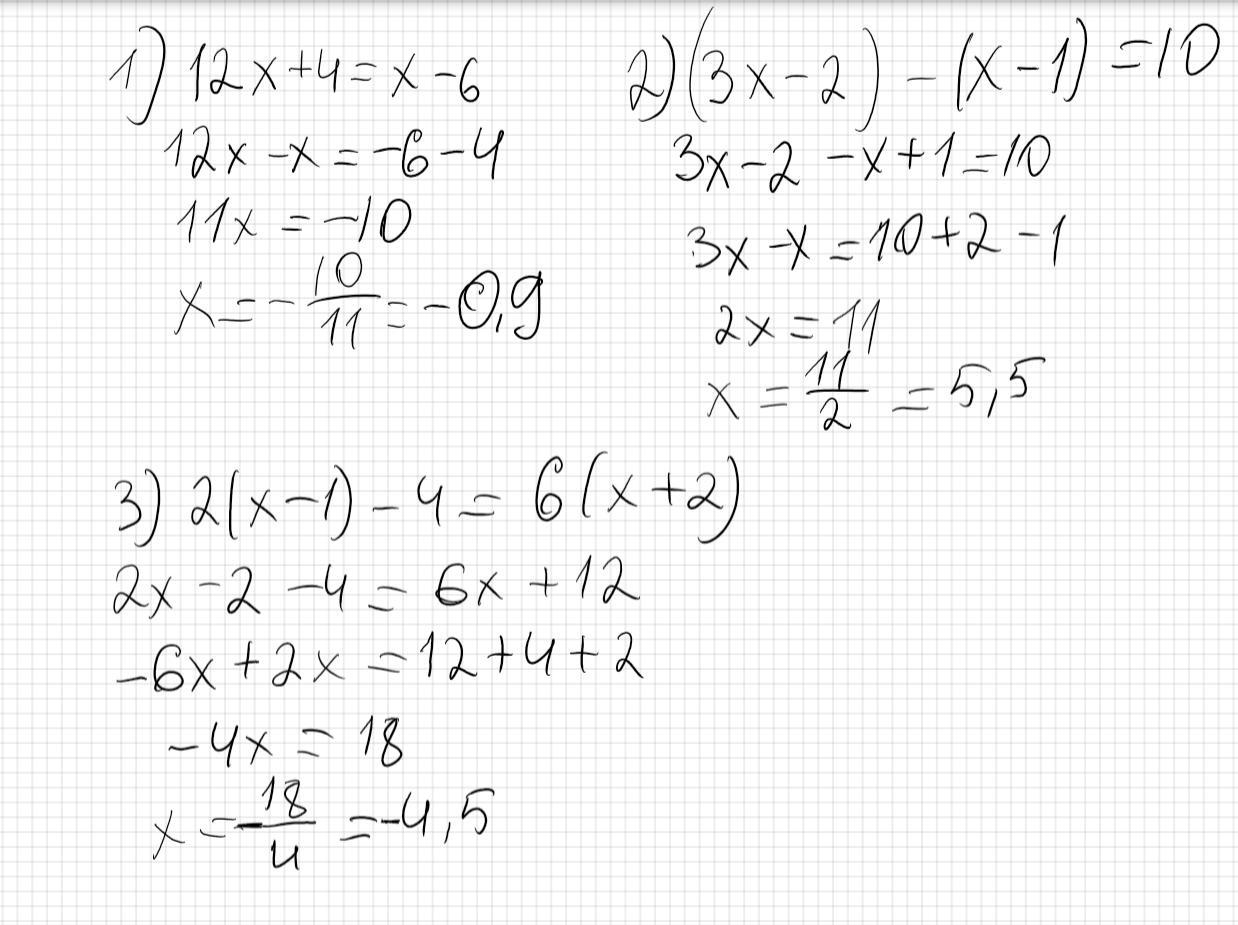 1) 12x+4=x-6
12x-x=-6-4
11x=-10
x=-10/11=-0,9
2) (3x-2)-(x-1)=10
3x-2-x+1=10
3x-x=10+2-1
2x=11
x=11/2=5,5
3) 2(x-1)-4=6(x+2)
2x-2-4=6x+12
-6x+2x=12+4+2
-4x=18
x=-18/4=-4,5